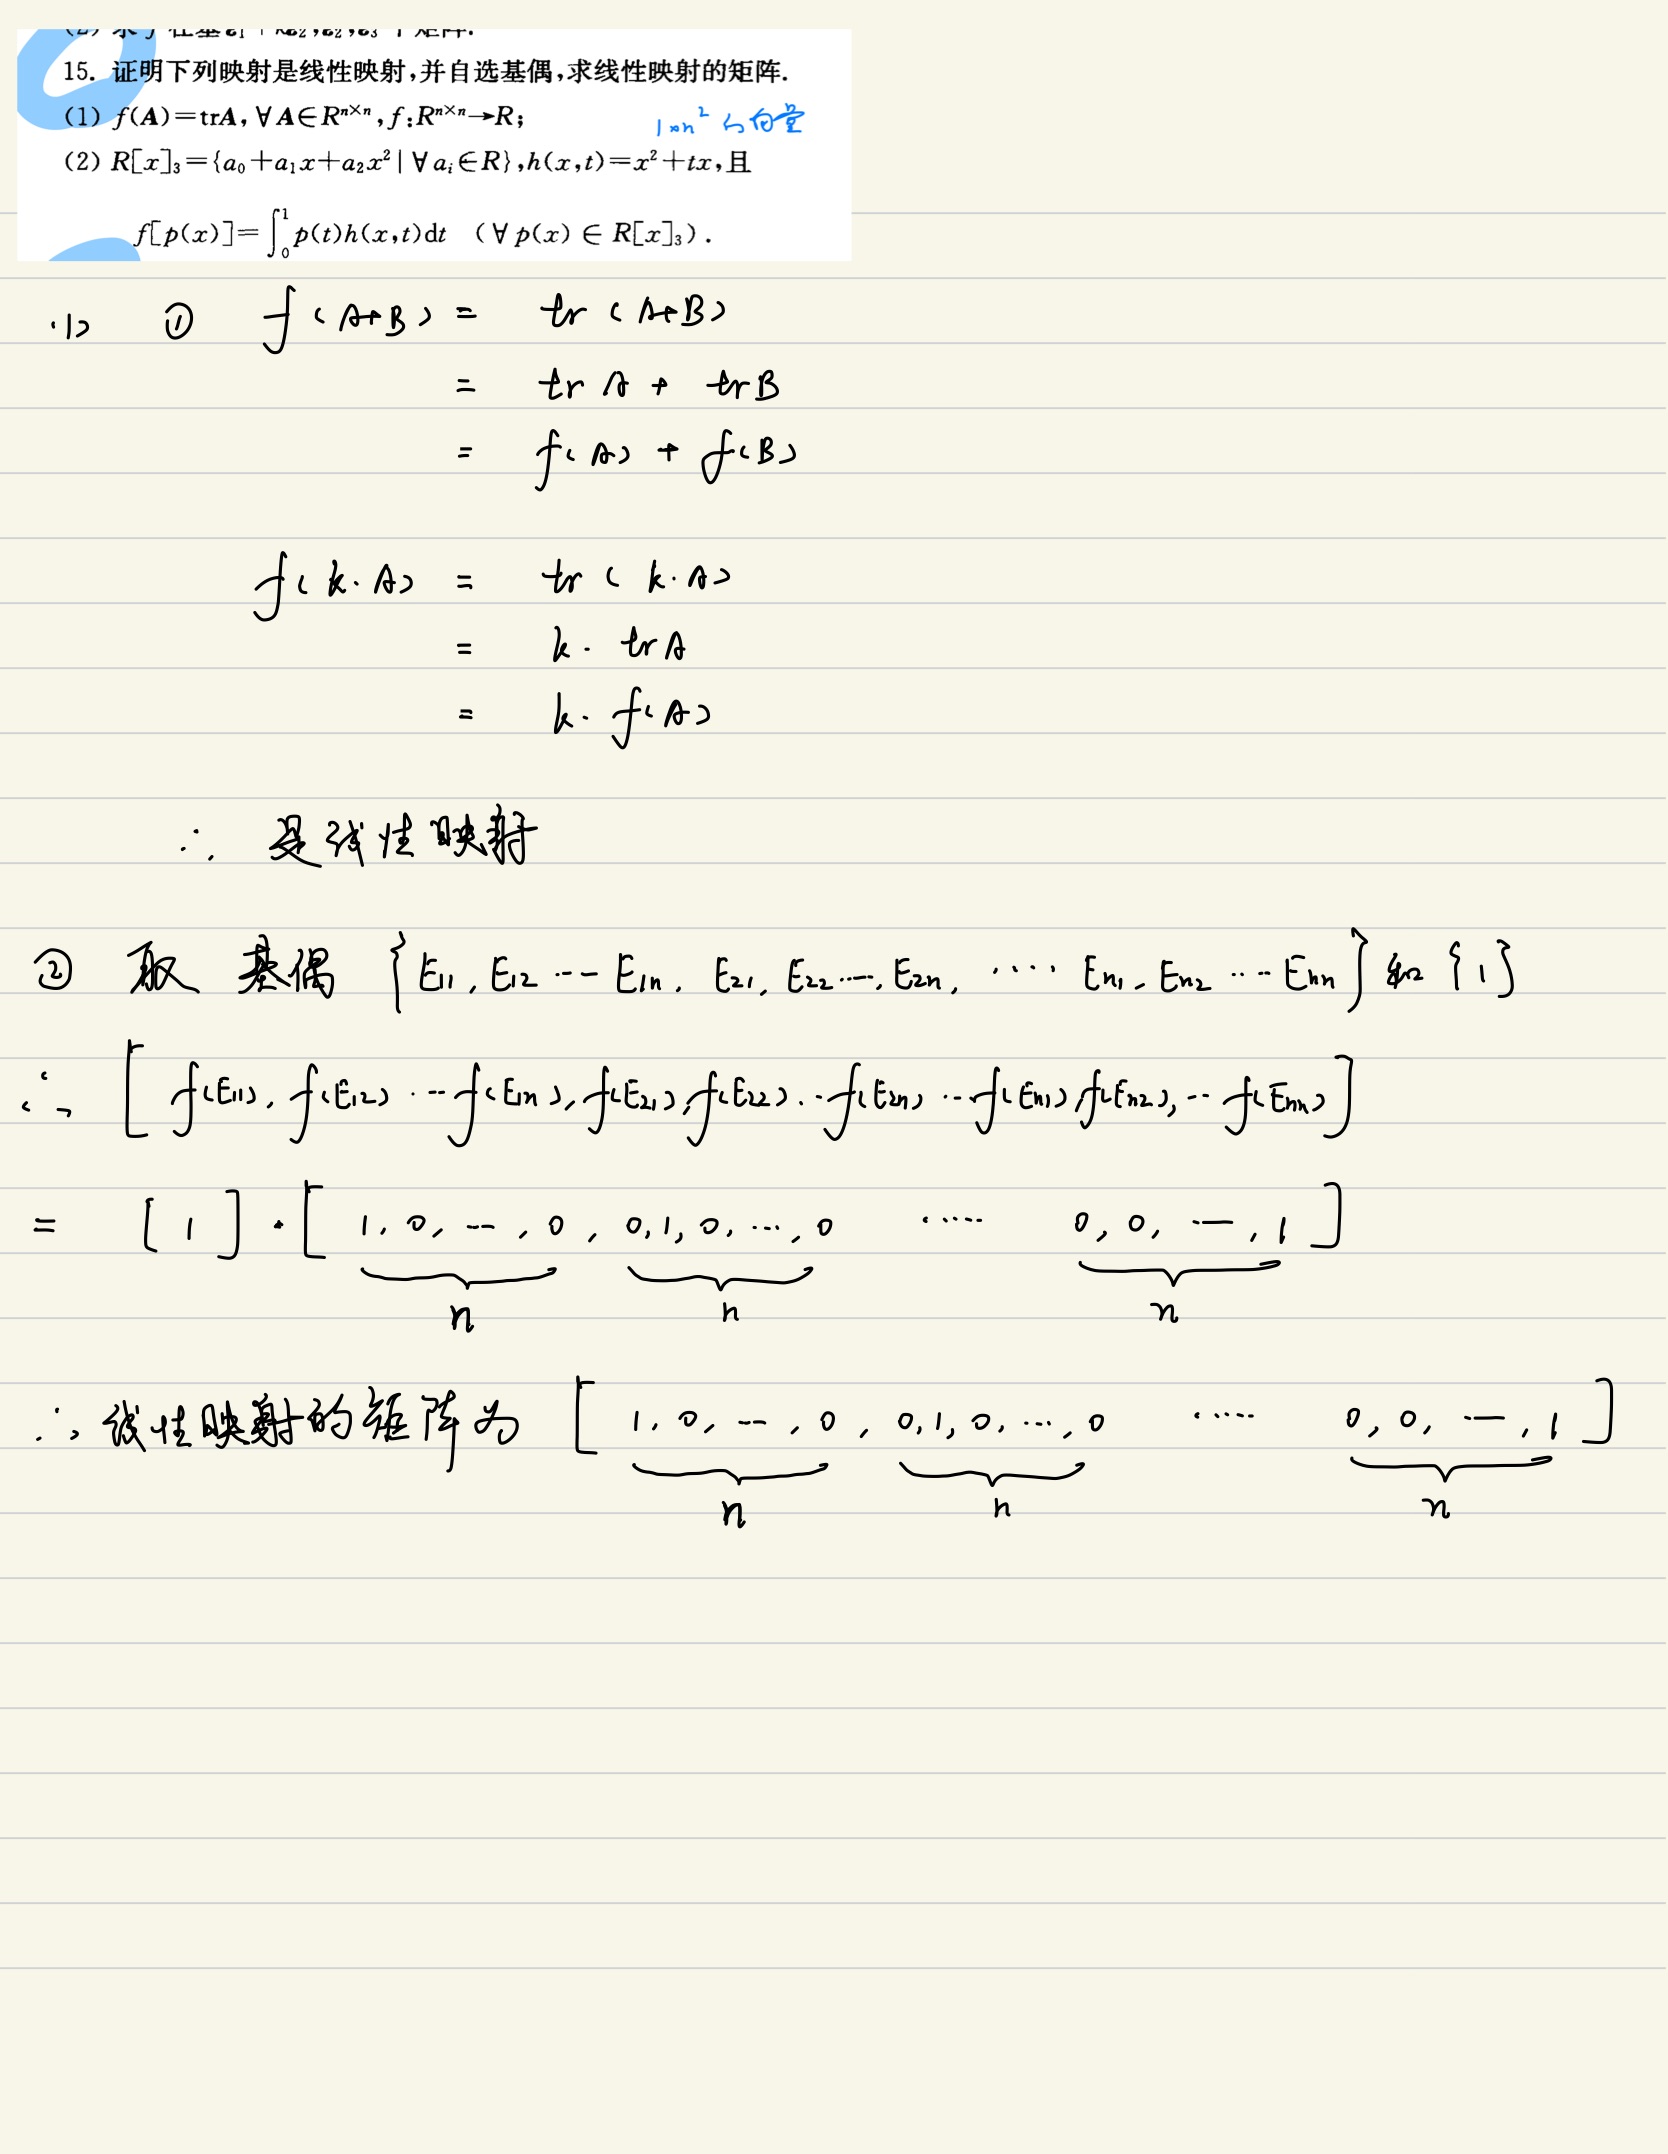 15. 证明下列映射是线性映射,并自选基偶,求线性映射的矩阵.
(1) f(A)=trA, ∀A∈Rⁿˣⁿ, f:Rⁿˣⁿ→R;
1×n² 的向量
(2) R[x]₃={a₀+a₁x+a₂x²|∀aᵢ∈R},h(x,t)=x²+tx,且
f[p(x)]=∫₀¹p(t)h(x,t)dt (∀p(x)∈R[x]₃).
(1) ① f(A+B) = tr(A+B)
= trA + trB
= f(A) + f(B)
f(k·A) = tr(k·A)
= k·trA
= k·f(A)
∴ 是线性映射
② 取 基偶 {E₁₁, E₁₂ ··· E₁ₙ, E₂₁, E₂₂ ···, E₂ₙ, ···· Eₙ₁, Eₙ₂ ··· Eₙₙ} 和 {1}
∴ [f(E₁₁), f(E₁₂) ··· f(E₁ₙ), f(E₂₁), f(E₂₂) ··· f(E₂ₙ) ··· f(Eₙ₁), f(Eₙ₂), ··· f(Eₙₙ)]
= [1]·[1, 0, ···, 0, 0, 1, 0, ···, 0 ····· 0, 0, ···, 1]
n n n
∴ 线性映射的矩阵为 [1, 0, ···, 0, 0, 1, 0, ···, 0 ····· 0, 0, ···, 1]
n n n